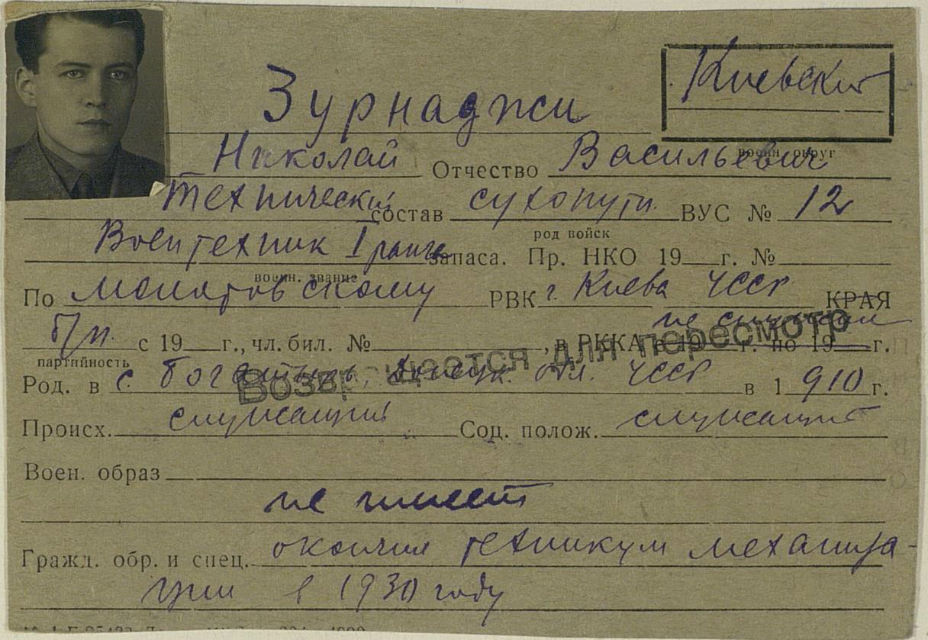 Киевский
Зурнаджи
воен. округ
Николай Отчество Васильевич
Технический состав сухопутн. ВУС № 12
род войск
Воентехник I ранга запаса. Пр. НКО 19 г. №
воен. звание
По РВК г. Киева УССР КРАЯ
не служил
б/п с 19 г., чл. бил. № , в РККА с 19 г. по 19 г.
партийность
Возвращается для пересмотр
Род. в с. обл. УССР в 1910 г.
Происх. служащий Соц. полож. служащий
Воен. образ
не имеет
Гражд. обр. и спец. окончил техникум механиза-
ции в 1930 году